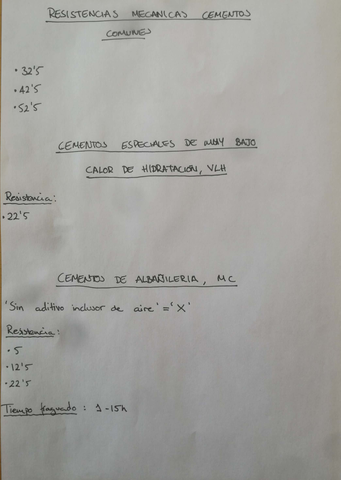 RESISTENCIAS MECANICAS CEMENTOS
COMUNES
• 32'5
• 42'5
• 52'5
CEMENTOS ESPECIALES DE MUY BAJO
CALOR DE HIDRATACION, VLH
Resistencia:
• 22'5
CEMENTOS DE ALBAÑILERIA, MC
'Sin aditivo inclusor de aire' = 'X'
Resistencia:
• 5
• 12'5
• 22'5
Tiempo fraguado : 1-15h